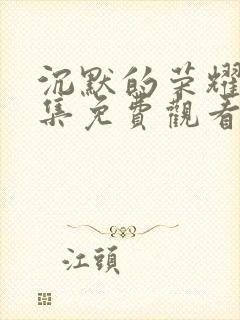 沉默的荣耀
集免費觀看
江頭